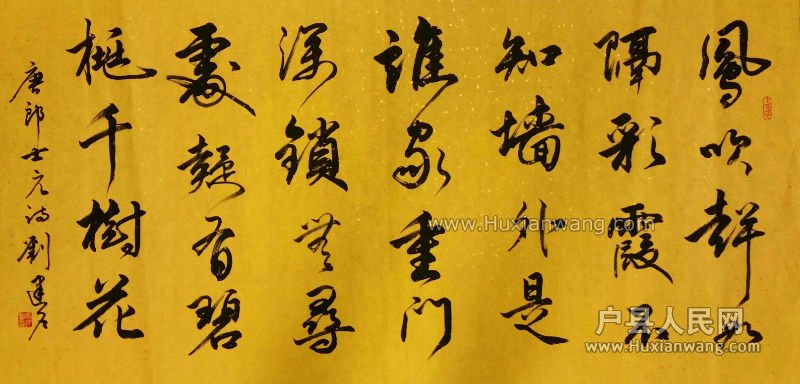 鳳吹聲如
隔彩霞不
知墙外是
誰家重門
深鎖無尋
處疑有碧
桃千樹花
唐郎士元詩劉建
www.Huxianwang.com
户县人民网
www.Huxianwang.com